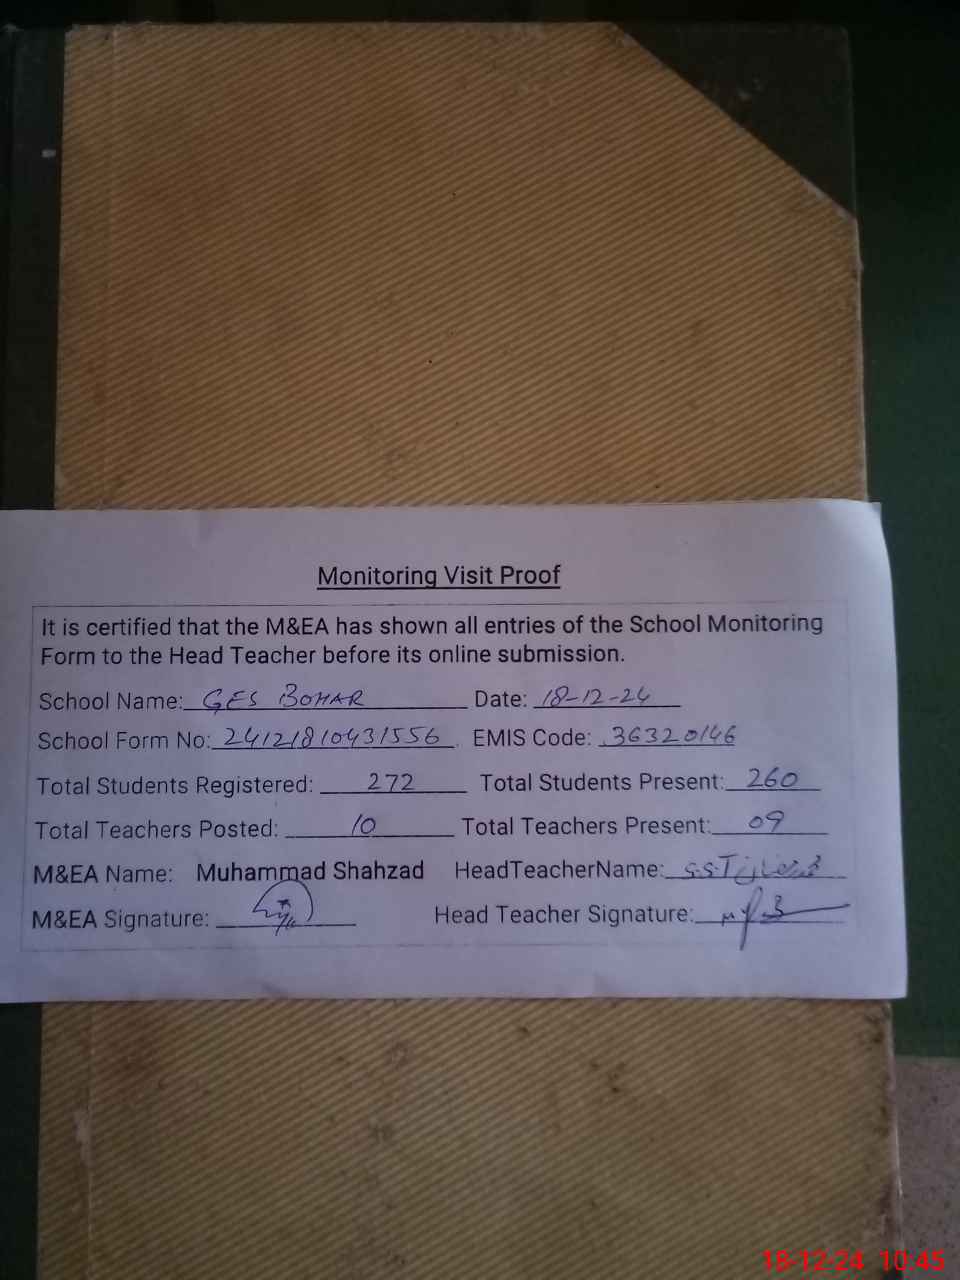 Monitoring Visit Proof
It is certified that the M&EA has shown all entries of the School Monitoring
Form to the Head Teacher before its online submission.
School Name: GES BOHAR Date: 18-12-24
School Form No: 24121810431556 EMIS Code: 36320146
Total Students Registered: 272 Total Students Present: 260
Total Teachers Posted: 10 Total Teachers Present: 09
M&EA Name: Muhammad Shahzad HeadTeacherName: S.S.T
M&EA Signature: Head Teacher Signature:
18-12-24 10:45